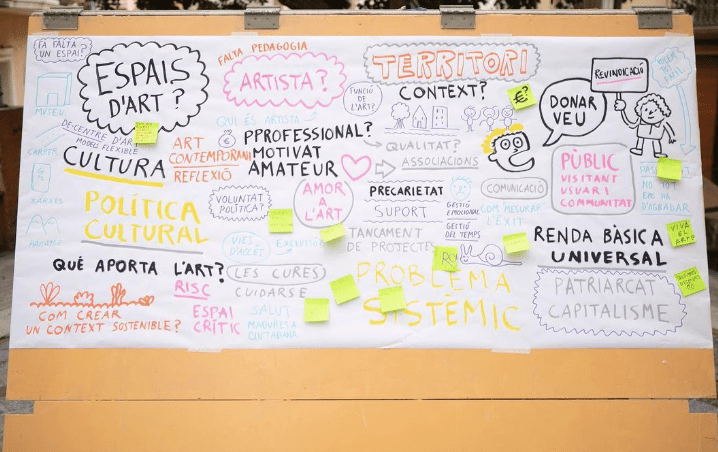 FA FALTA
UN ESPAI!
ESPAIS
D'ART?
MUSEU
DECENTRE D'ART
MODEL FLEXIBLE
CULTURA
XARXES
POLÍTICA
CULTURAL
QUÈ APORTA L'ART?
RISC
COM CREAR
UN CONTEXT SOSTENIBLE?
ESPAI
CRÍTIC
FALTA PEDAGOGIA
ARTISTA?
QUI ÉS ARTISTA
ART
CONTEMPORANI
REFLEXIÓ
PPROFESSIONAL?
MOTIVAT
AMATEUR
VOLUNTAT
POLÍTICA?
AMOR
A
L'ART
VIES
D'ACCÉS
LES CURES
CUIDARSE
SALUT
FUNCIÓ
DE
L'ART?
TERRITORI
CONTEXT?
QUALITAT?
ASSOCIACIONS
PRECARIETAT
SUPORT
GESTIÓ
EMOCIONAL
GESTIÓ
DEL TEMPS
TANCAMENT
DE PROJECTES
PROBLEMA
SISTÈMIC
€?
DONAR
VEU
REVINDICACIÓ
COMUNICACIÓ
COM MESURAR
L'ÈXIT
PÚBLIC
VISITANT
USUARI
COMUNITAT
NO TOT
EM HA
D'AGRADAR
RENDA BÀSICA
UNIVERSAL
VIVA
EL
ARTE
PATRIARCAT
CAPITALISME